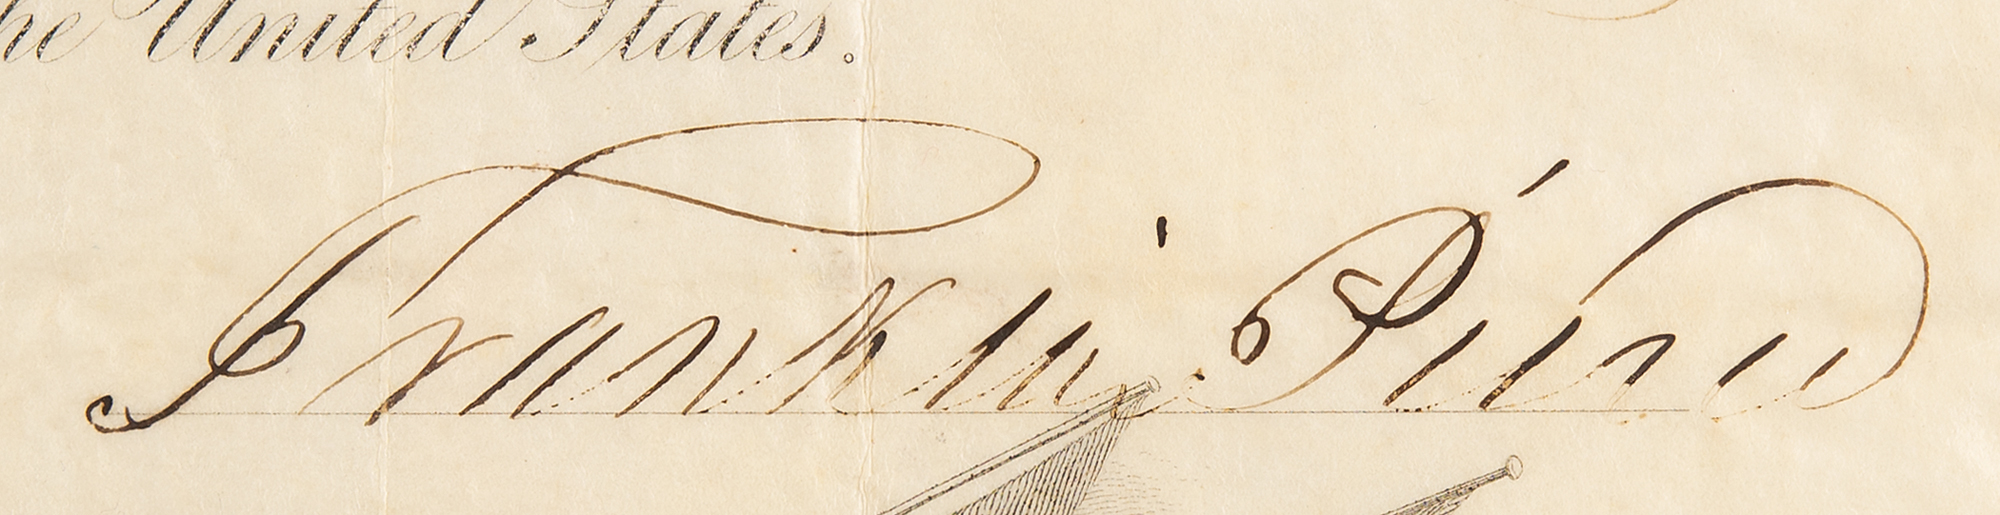 he United States.
Franklin Pierce